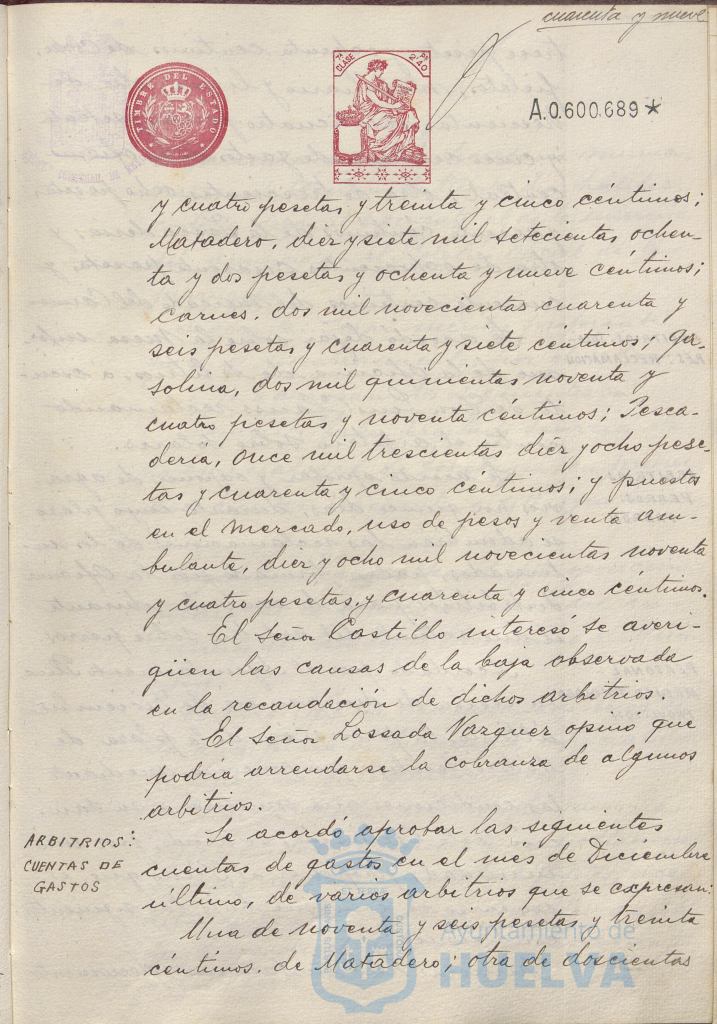 cuarenta y nueve
TIMBRE DEL ESTADO
7ª CLASE
Ps 2'40
A.0.600.689★
y cuatro pesetas y treinta y cinco céntimos;
Matadero, diez y siete mil setecientas ochen-
ta y dos pesetas y ochenta y nueve céntimos;
carnes, dos mil novecientas cuarenta y
seis pesetas y cuarenta y siete céntimos; ga-
solina, dos mil quinientas noventa y
cuatro pesetas y noventa céntimos; Pesca-
dería, once mil trescientas diez y ocho pese-
tas y cuarenta y cinco céntimos; y puestos
en el mercado, uso de pesos y venta am-
bulante, diez y ocho mil novecientas noventa
y cuatro pesetas, y cuarenta y cinco céntimos.
El señor Castillo interesó se averi-
güen las causas de la baja observada
en la recaudación de dichos arbitrios.
El señor Lossada Vazquez opinó que
podría arrendarse la cobranza de algunos
arbitrios.
ARBITRIOS:
CUENTAS DE
GASTOS
Se acordó aprobar las siguientes
cuentas de gastos en el més de Diciembre
último, de varios arbitrios que se expresan:
Una de noventa y seis pesetas y treinta
céntimos, de Matadero; otra de doscientas
Ayuntamiento de
HUELVA